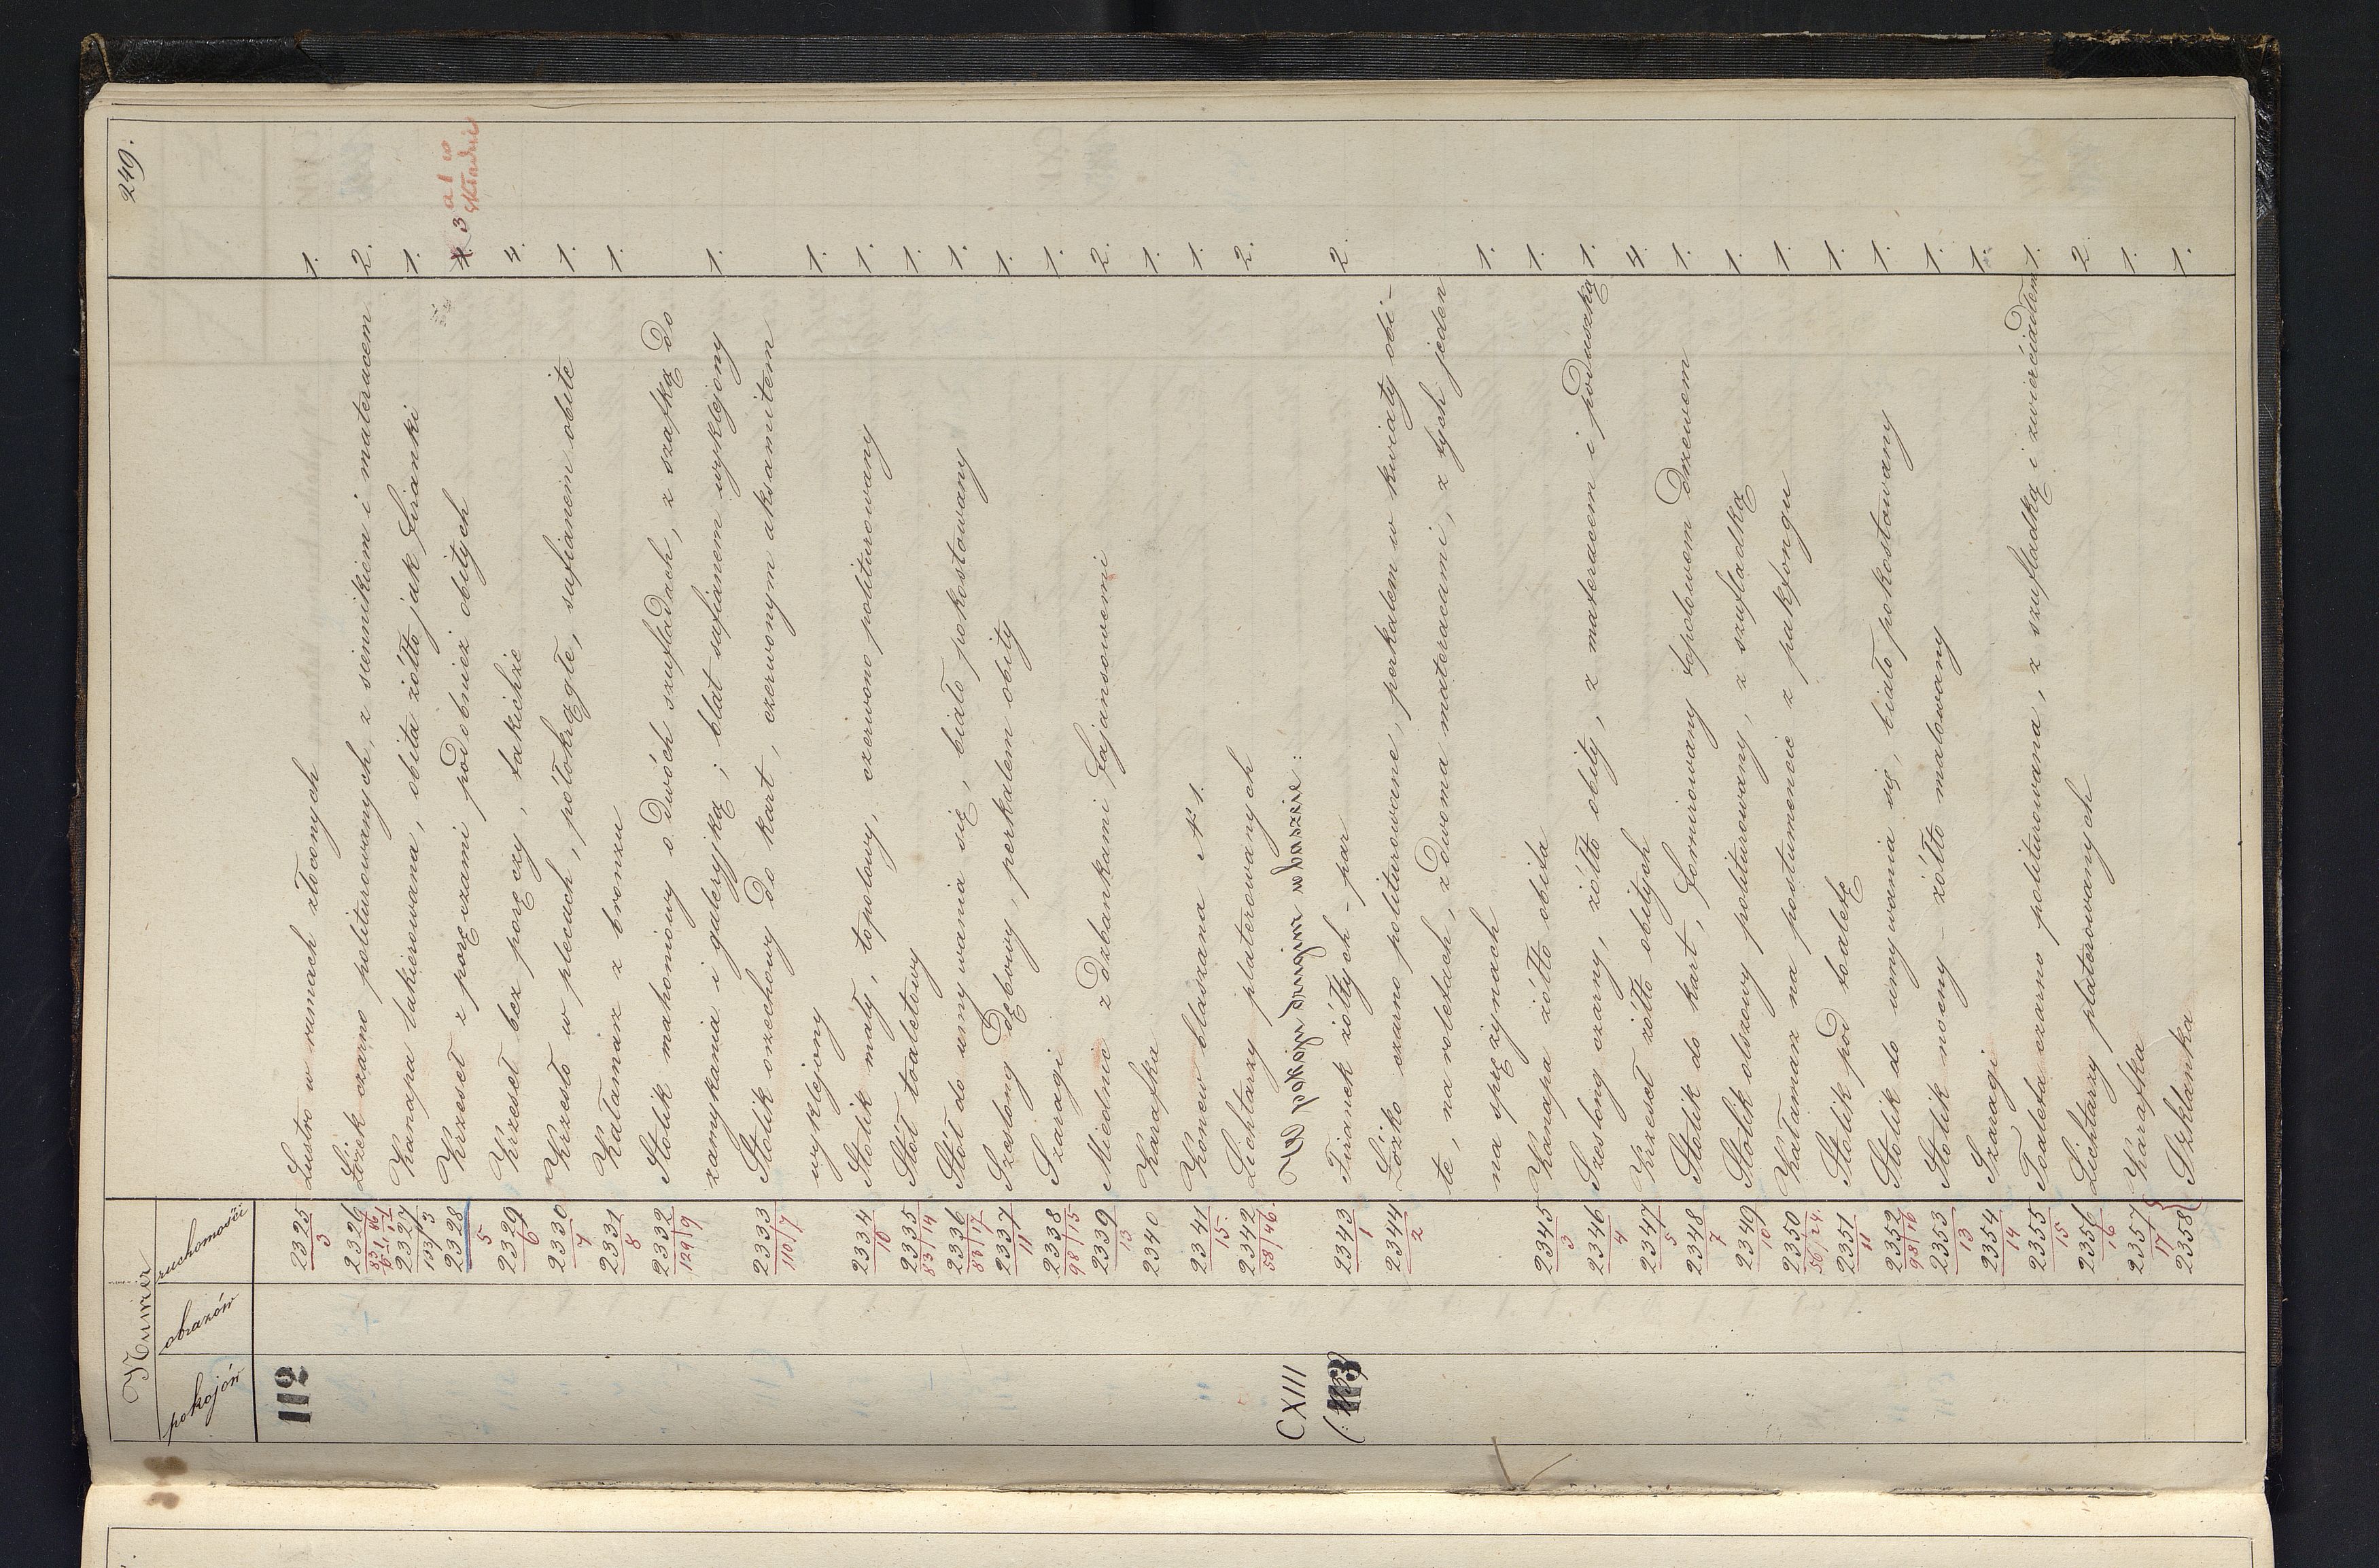 249.
Numer
pokojów obrazów ruchomości
112
2325 Lustro w ramach złoconych 1.
3
2326 Łóżek czarno politurowanych, z siennikiem i materacem 2.
2327 Kanapa lakierowana, obita żółto jak firanki 1.
103/3
2328 Krzeseł z poręczami podobnież obitych 4. 3 a 1 w składzie
5
2329 Krzeseł bez poręczy, takichże 4.
6
2330 Krzesło w plecach, półokrągłe, safianem obite 1.
7
2331 Kałamarz z bronzu 1.
8
2332 Stolik mahoniowy o dwóch szufladach, z szafką do
129/9 zamykania i galeryjką; blat safianem wyklejony 1.
2333 Stolik orzechowy do kart, czerwonym aksamitem
110/7 wyklejony 1.
2334 Stolik mały, topolowy, czerwono politurowany 1.
10
2335 Stół toaletowy 1.
83/14
2336 Stół do umywania się, biało pokostowany 1.
83/17
2337 Szeslong dębowy, perkalem obity 1.
11
2338 Szaragi 1.
98/15
2339 Miednic z dzbankami fajansowemi 2.
13
2340 Karafka 1.
2341 Konew blaszana № 1. 1.
15.
2342 Lichtarzy platerowanych 2.
58/46.
CXIII W pokoju drugim w baszcie:
(113)
2343 Firanek żółtych - par 2.
1
2344 Łóżko czarno politurowane, perkalem w kwiaty obi-
2 te, na roletach, z dwoma materacami, z tych jeden
na sprężynach 1.
2345 Kanapa żółto obita 1.
3
2346 Szeslong czarny, żółto obity, z materacem i poduszką 1.
4
2347 Krzeseł żółto obitych 4.
5
2348 Stolik do kart, fornirowany topolowem drzewem 1.
7
2349 Stolik olszowy politurowany, z szufladką 1.
10
2350 Kałamarz na postumencie z pakfongu 1.
56/24.
2351 Stolik pod toaletę 1.
11
2352 Stolik do umywania się, biało pokostowany 1.
98/16
2353 Stolik nocny - żółto malowany 1.
13
2354 Szaragi 1.
14
2355 Toaleta czarno politurowana, z szufladką i zwierciadłem 1.
15
2356 Lichtarzy platerowanych 2
16
2357 Karafka 1.
17
2358 Szklanka 1.